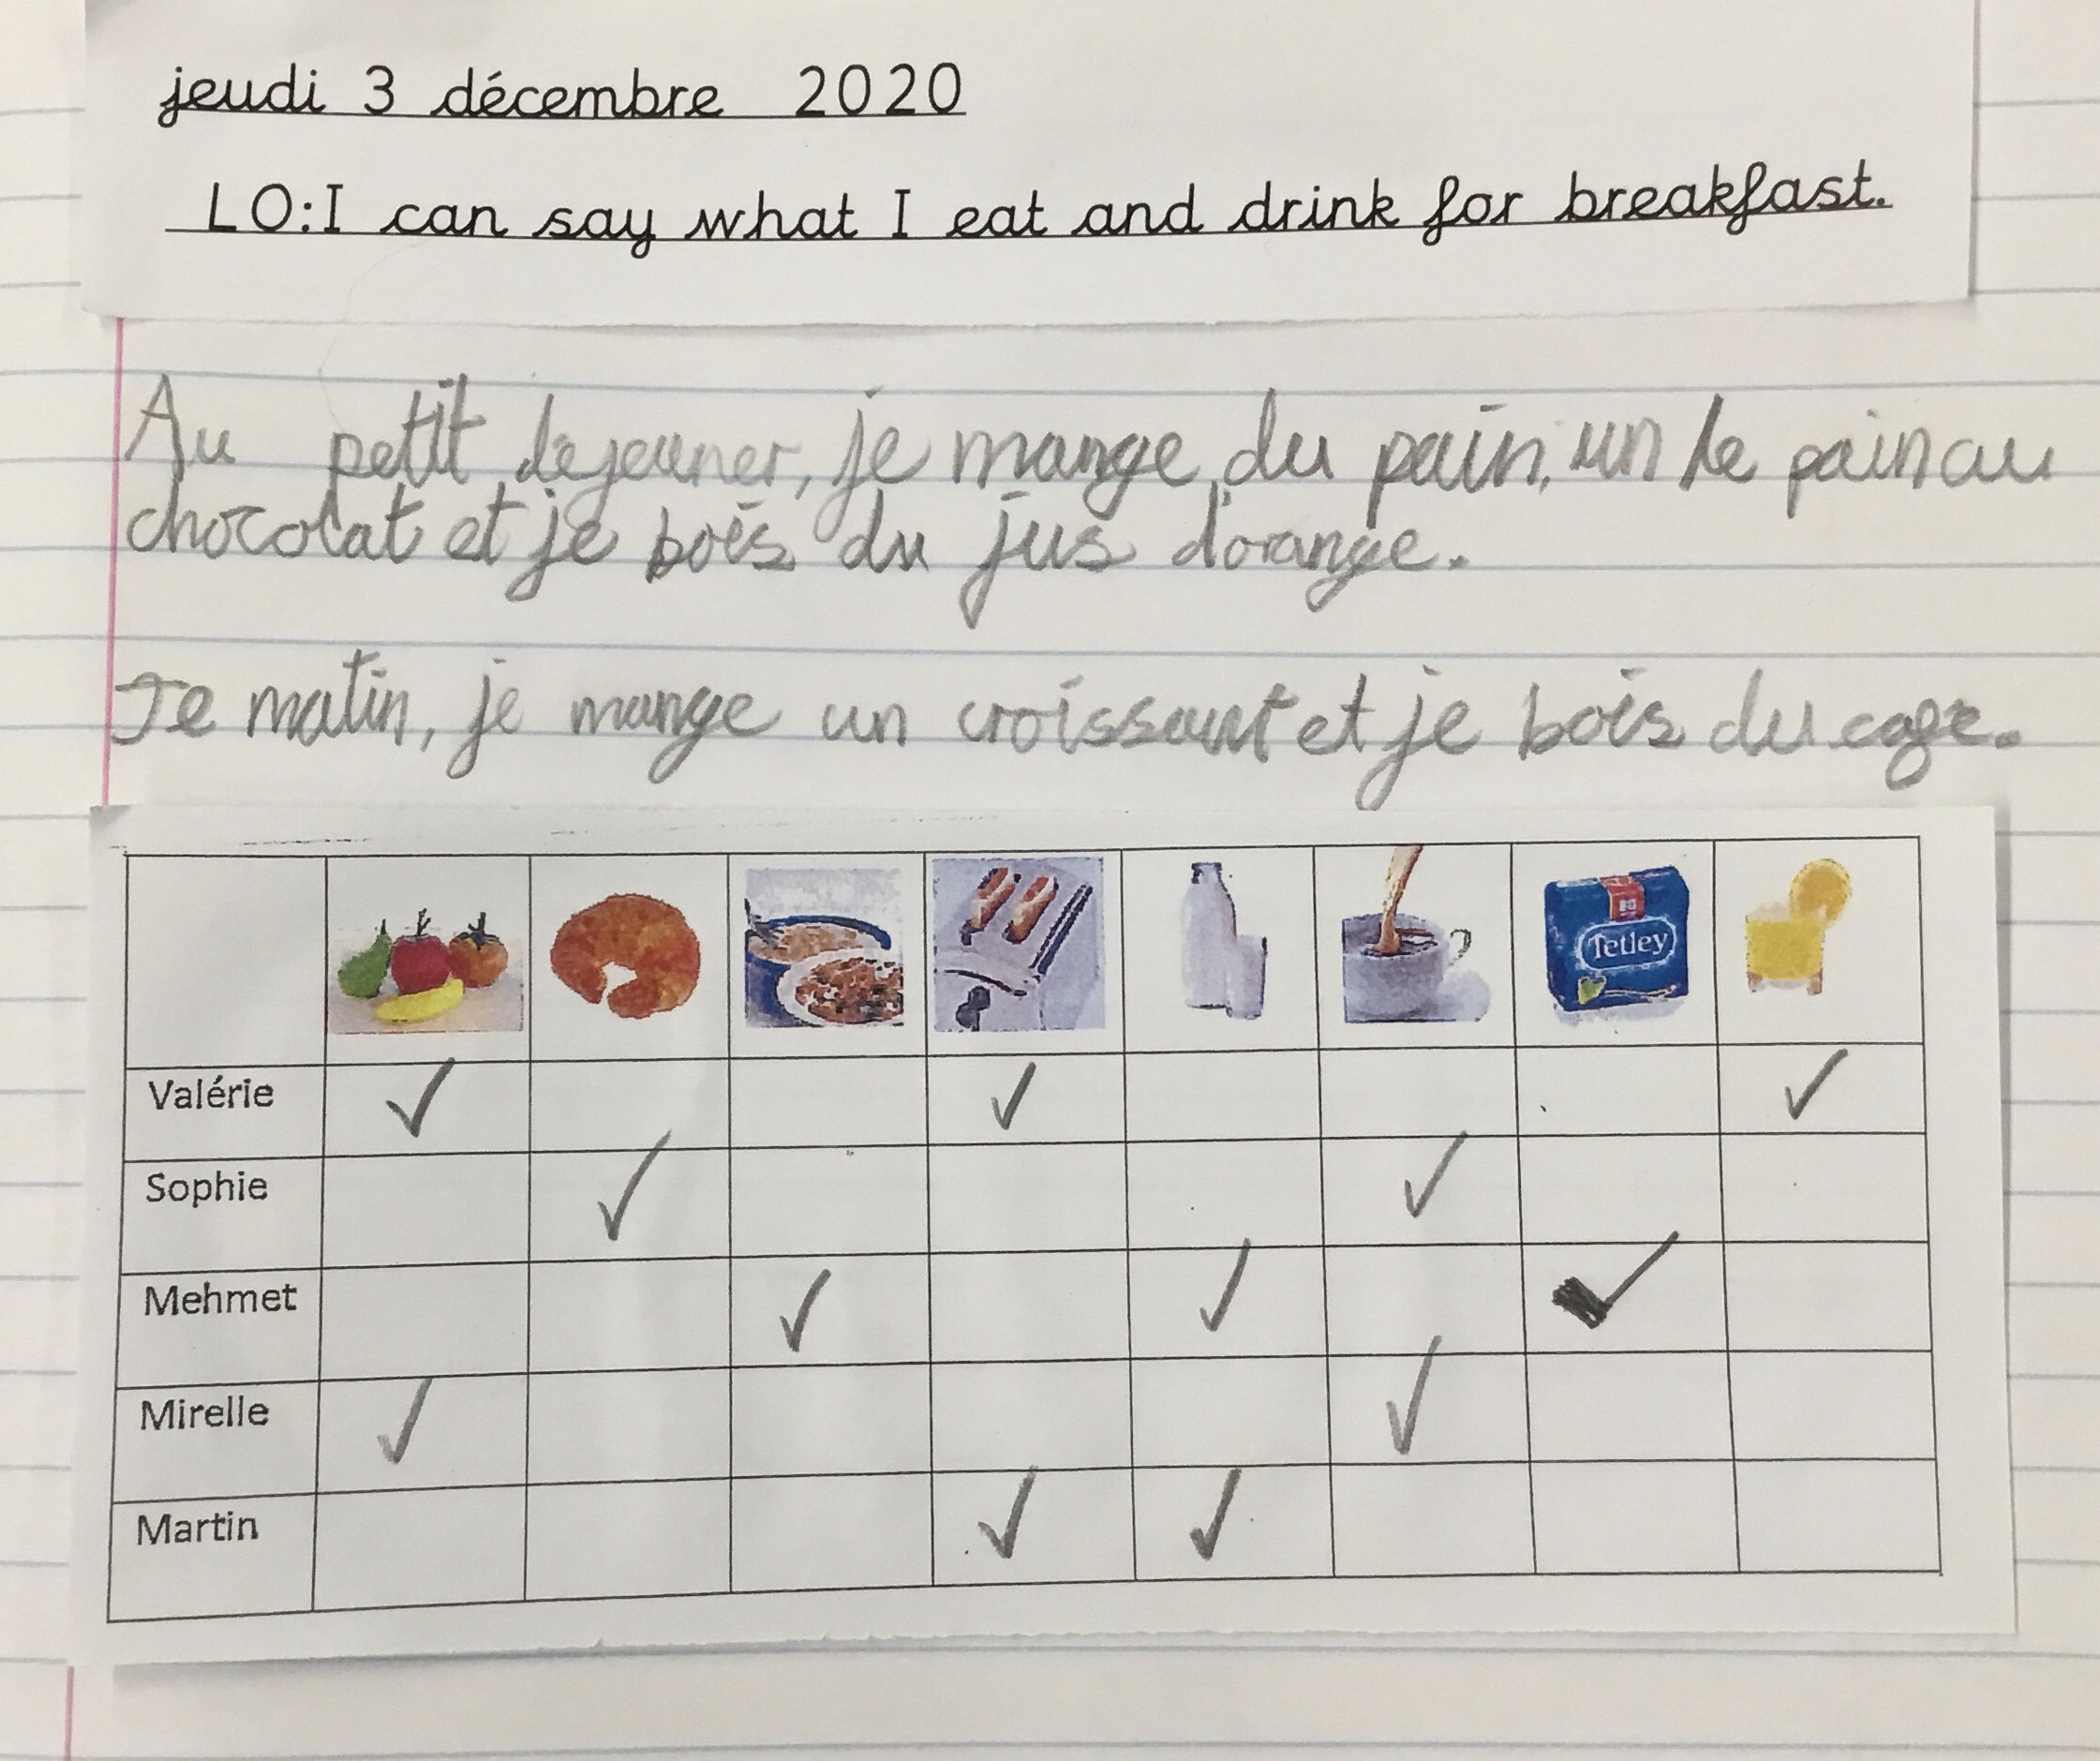 jeudi 3 décembre 2020
LO:I can say what I eat and drink for breakfast.
Au petit dejeuner, je mange du pain, un le pain au
chocolat et je bois du jus d'orange.
Je matin, je mange un croissant et je bois du cafe.
Tetley
Valérie
Sophie
Mehmet
Mirelle
Martin